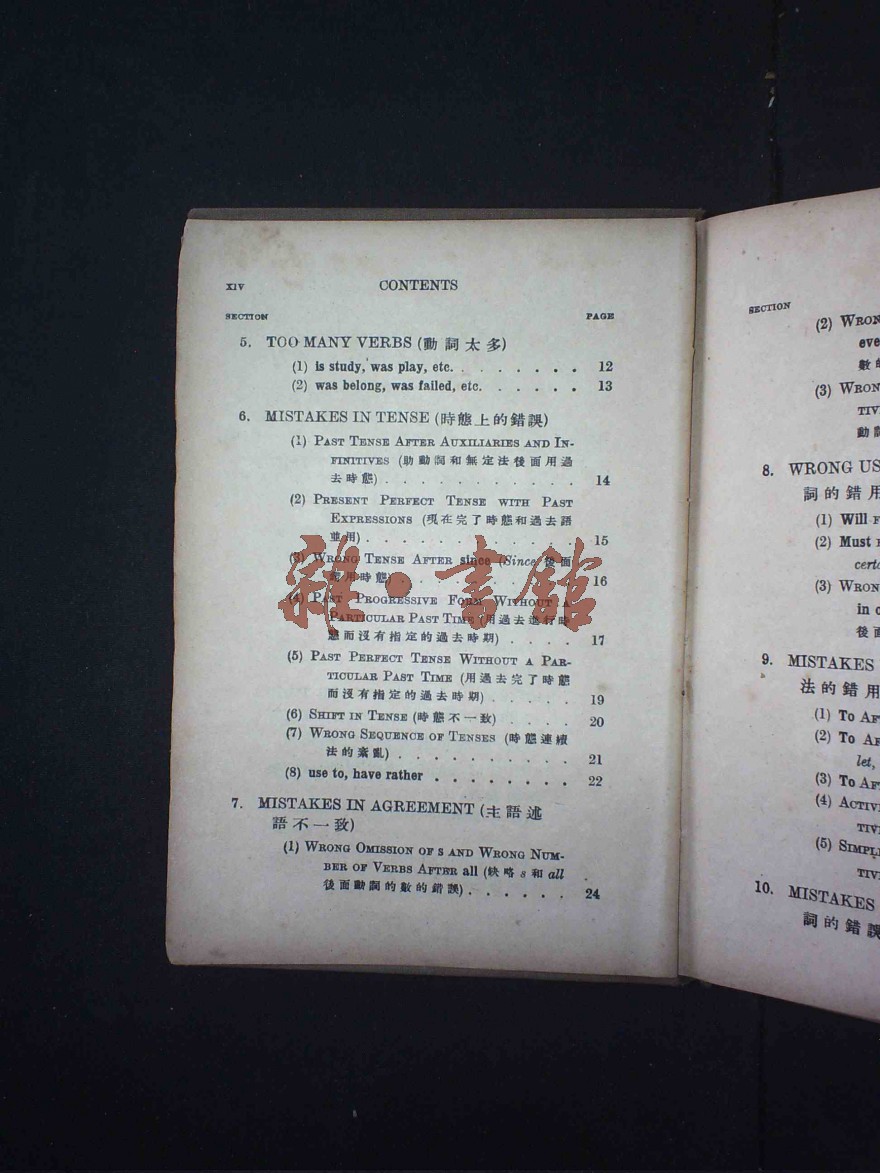 XIV CONTENTS
SECTION PAGE
5. TOO MANY VERBS (動詞太多)
(1) is study, was play, etc. . . . . . . . 12
(2) was belong, was failed, etc. . . . . . 13
6. MISTAKES IN TENSE (時態上的錯誤)
(1) PAST TENSE AFTER AUXILIARIES AND IN-
FINITIVES (助動詞和無定法後面用過
去時態) . . . . . . . . . . . . 14
(2) PRESENT PERFECT TENSE WITH PAST
EXPRESSIONS (現在完了時態和過去語
並用) . . . . . . . . . . . . . 15
(3) WRONG TENSE AFTER since (Since 後面
用時態) . . . . . . . . . . . 16
(4) PAST PROGRESSIVE FORM WITHOUT A
PARTICULAR PAST TIME (用過去進行時
態而沒有指定的過去時期) . . . . 17
(5) PAST PERFECT TENSE WITHOUT A PAR-
TICULAR PAST TIME (用過去完了時態
而沒有指定的過去時期) . . . . . 19
(6) SHIFT IN TENSE (時態不一致) . . . . 20
(7) WRONG SEQUENCE OF TENSES (時態連續
法的紊亂) . . . . . . . . . . . 21
(8) use to, have rather . . . . . . . . 22
7. MISTAKES IN AGREEMENT (主語述
語不一致)
(1) WRONG OMISSION OF S AND WRONG NUM-
BER OF VERBS AFTER all (缺略 s 和 all
後面動詞的數的錯誤) . . . . . . 24
雜·書館
SECTION
(2) WRON
eve
數的
(3) WRON
TIV
動詞
8. WRONG US
詞的錯用
(1) Will F
(2) Must
certa
(3) WRON
in c
後面
9. MISTAKES
法的錯用
(1) To AF
(2) To AF
let,
(3) To AF
(4) ACTIV
TIV
(5) SIMPL
TIV
10. MISTAKES
詞的錯誤